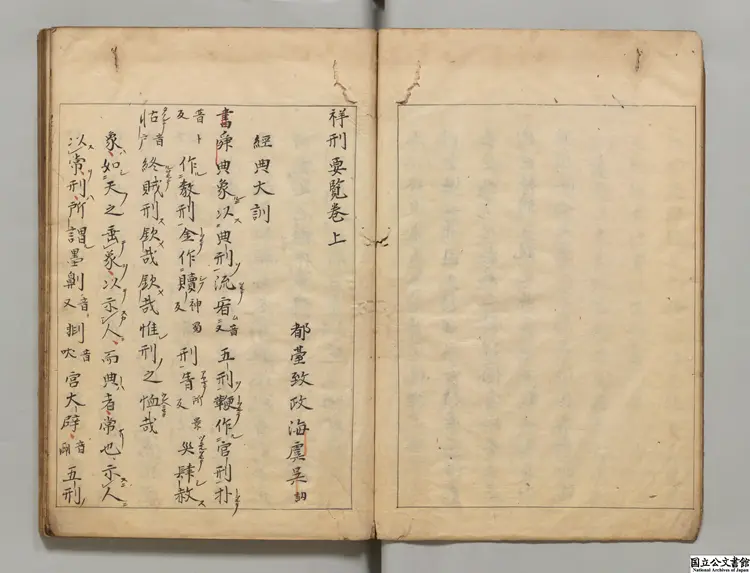 祥刑要覽卷上
都臺致政海虞吳訥
經典大訓
書舜典象以典刑流宥音又五刑鞭作官刑扑
普卜反作敎刑金作贖神蜀反刑眚所景反災肆赦
怙音戶終賊刑欽哉欽哉惟刑之恤哉
象如天之垂象以示人而典者常也示人
以常刑所謂墨劓音又刵音吹宮大辟音闢五刑
国立公文書館
National Archives of Japan